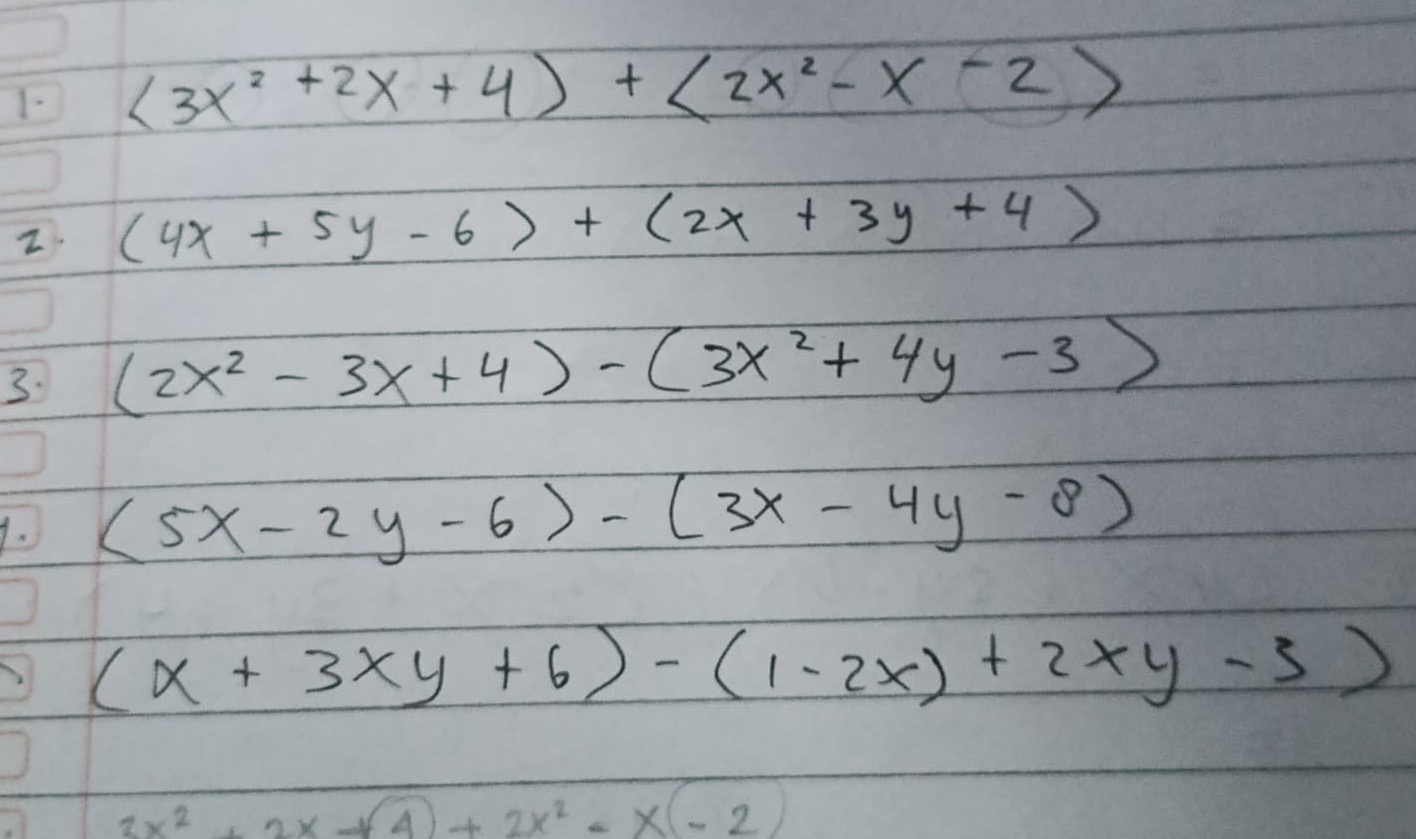 1. (3x² + 2x + 4) + (2x² - x - 2)
2. (4x + 5y - 6) + (2x + 3y + 4)
3. (2x² - 3x + 4) - (3x² + 4y - 3)
(5x - 2y - 6) - (3x - 4y - 8)
(x + 3xy + 6) - (1 - 2x) + 2xy - 3)
3x² + 2x + 4 + 2x² - x - 2